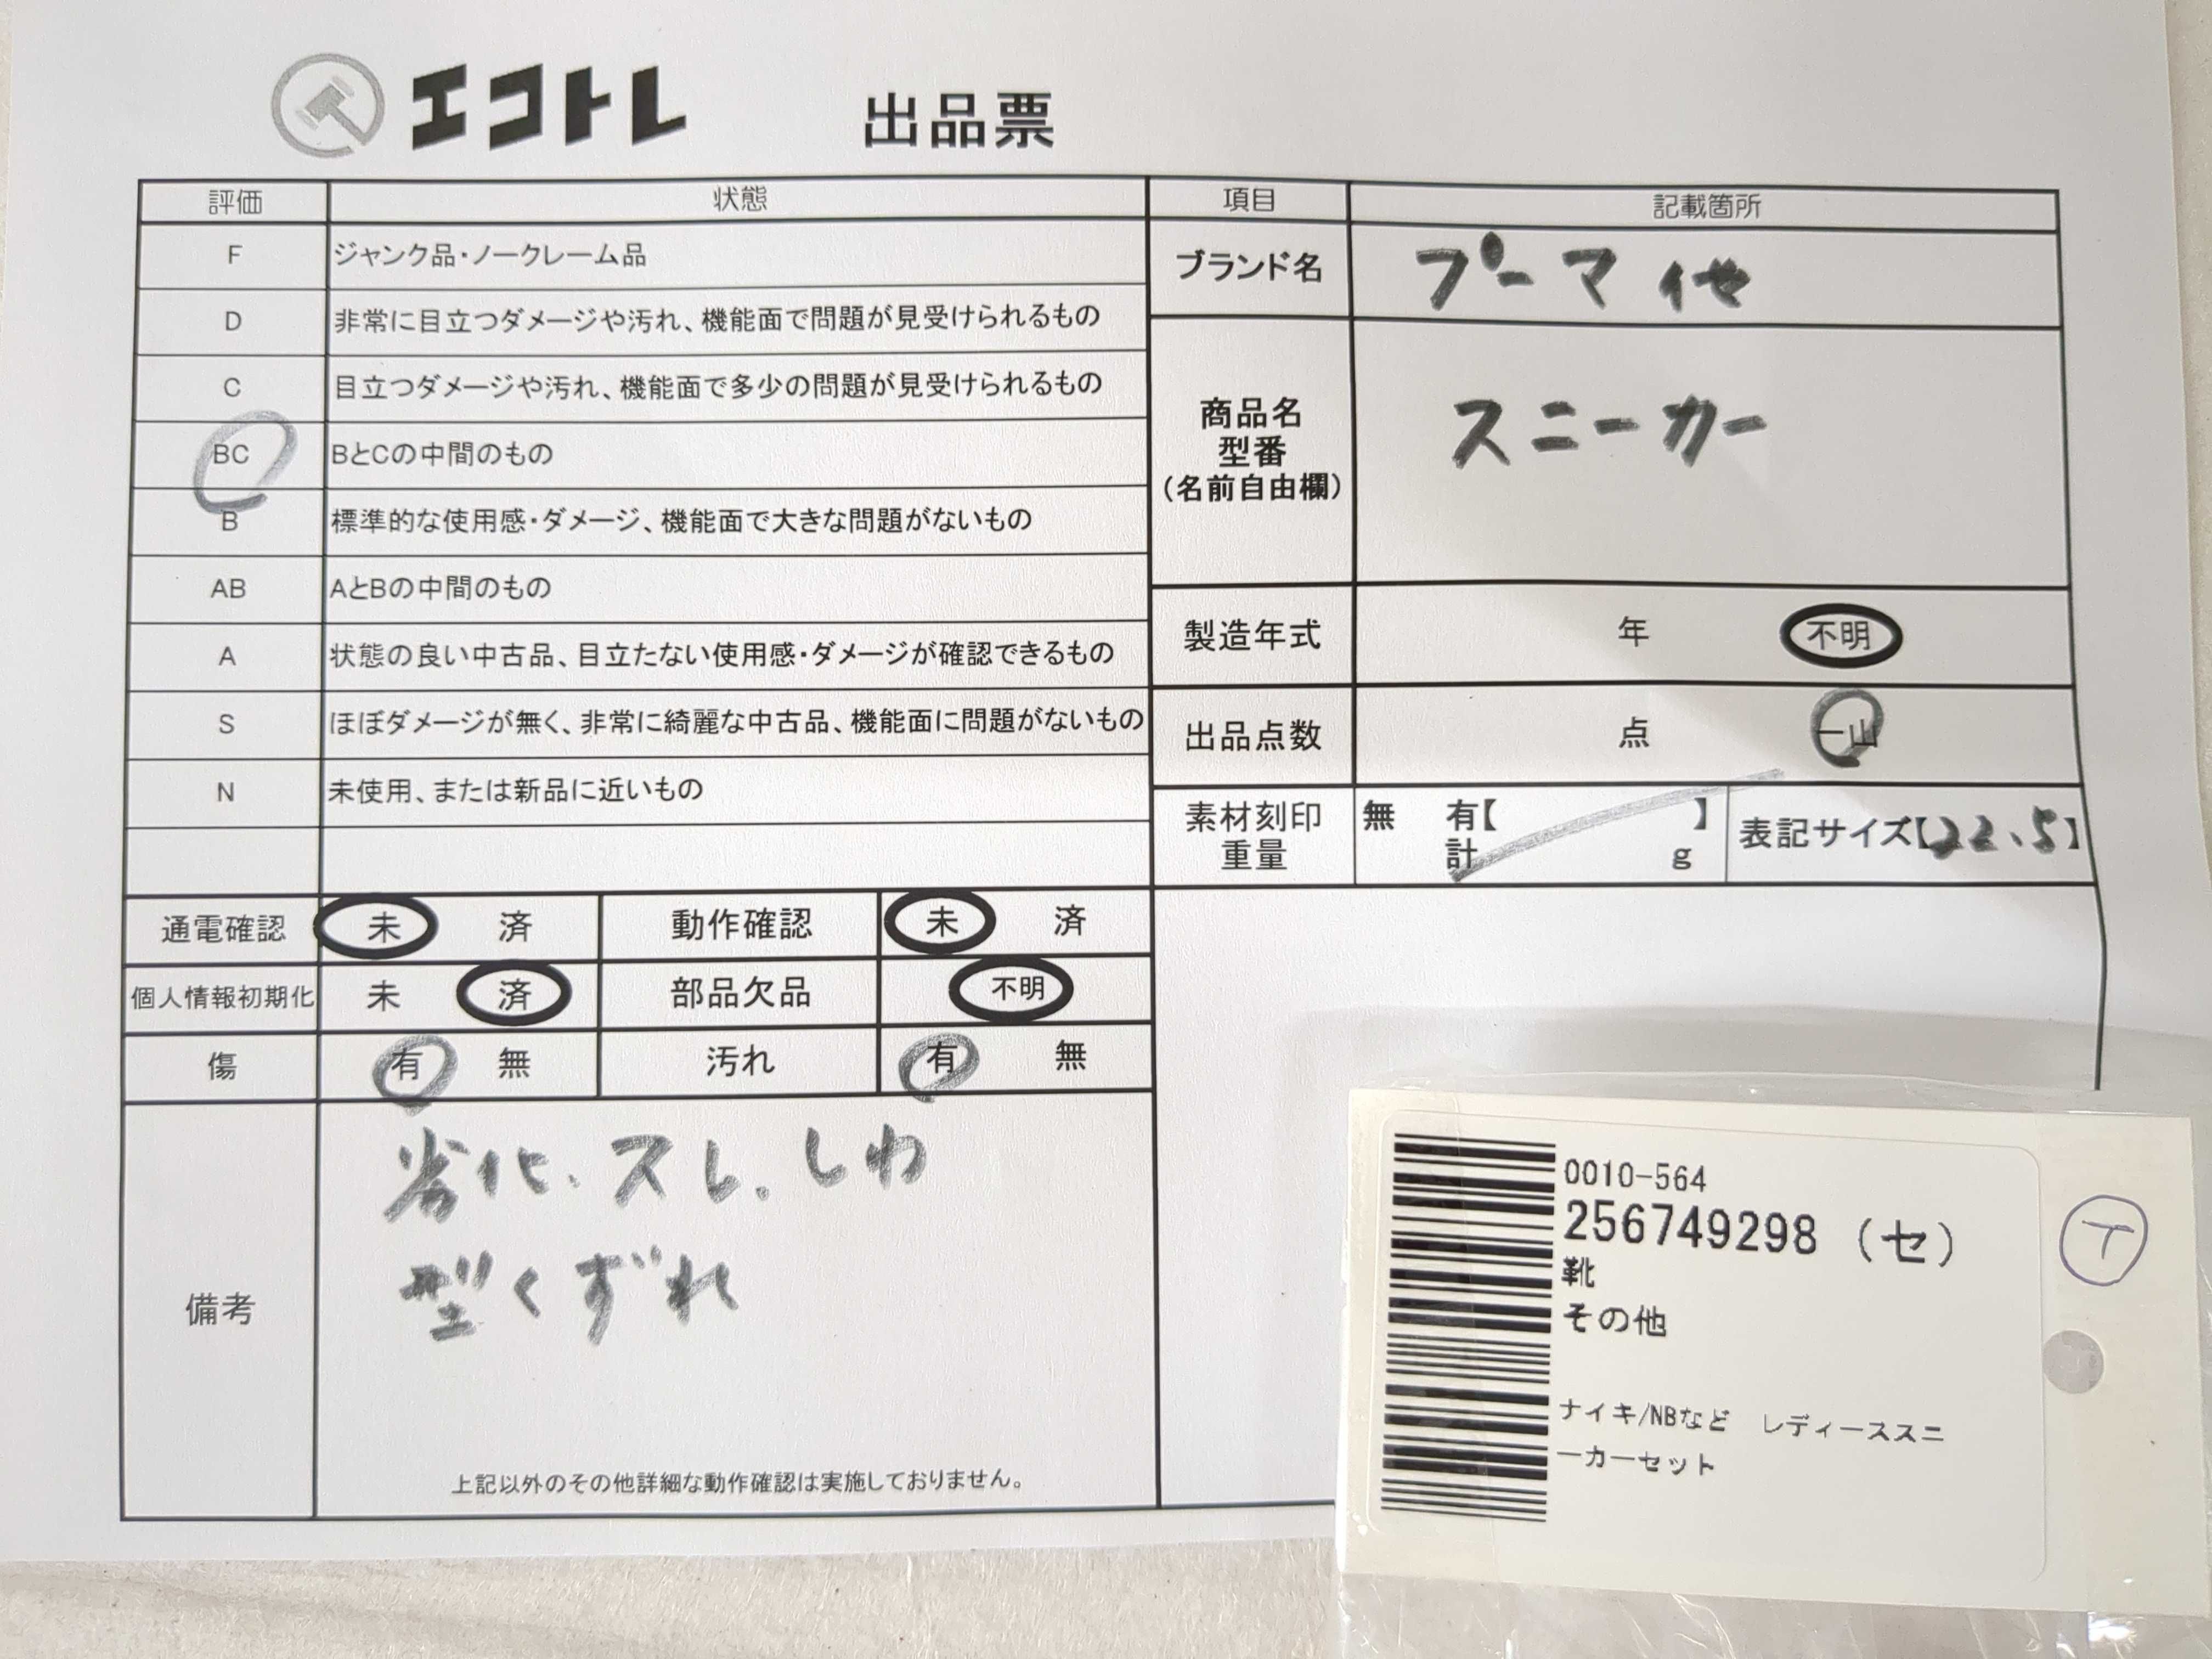 エコトレ 出品票
評価 状態 項目 記載箇所
F ジャンク品・ノークレーム品
D 非常に目立つダメージや汚れ、機能面で問題が見受けられるもの
C 目立つダメージや汚れ、機能面で多少の問題が見受けられるもの
BC BとCの中間のもの
B 標準的な使用感・ダメージ、機能面で大きな問題がないもの
AB AとBの中間のもの
A 状態の良い中古品、目立たない使用感・ダメージが確認できるもの
S ほぼダメージが無く、非常に綺麗な中古品、機能面に問題がないもの
N 未使用、または新品に近いもの
ブランド名 プーマ 他
商品名
型番
(名前自由欄)
スニーカー
製造年式 年 不明
出品点数 点 一山
素材刻印 無 有【 】
重量 計 g
表記サイズ【22.5】
通電確認 未 済 動作確認 未 済
個人情報初期化 未 済 部品欠品 不明
傷 有 無 汚れ 有 無
備考
劣化、スレ、しわ
型くずれ
上記以外のその他詳細な動作確認は実施しておりません。
0010-564
256749298 (セ)
靴
その他
ナイキ/NBなど レディーススニ
ーカーセット
T